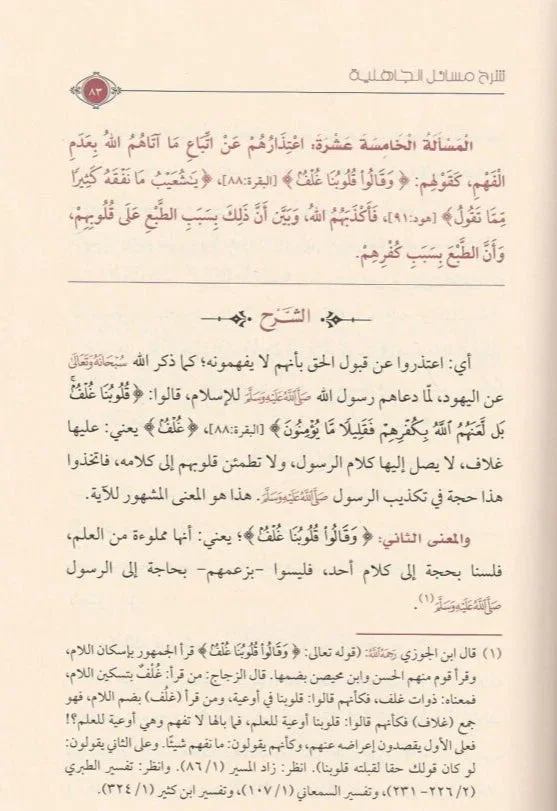 شرح مسائل الجاهلية
٨٣
الْمَسْأَلَةُ الْخَامِسَةَ عَشْرَةَ: اعْتِذَارُهُمْ عَنْ اتِّبَاعِ مَا آتَاهُمُ اللهُ بِعَدَمِ
الْفَهْمِ، كَقَوْلِهِم: ﴿وَقَالُوا قُلُوبُنَا غُلْفٌ﴾ [البقرة:٨٨]، ﴿يَشُعَيْبُ مَا نَفْقَهُ كَثِيرًا
مِّمَّا تَقُولُ﴾ [هود:٩١]، فَأَكْذَبَهُمُ اللهُ، وَبَيَّنَ أَنَّ ذَلِكَ بِسَبَبِ الطَّبْعِ عَلَى قُلُوبِهِمْ،
وَأَنَّ الطَّبْعَ بِسَبَبِ كُفْرِهِمْ.
الشَّرْح
أي: اعتذروا عن قبول الحق بأنهم لا يفهمونه؛ كما ذكر الله سُبْحَانَهُ وَتَعَالَى
عن اليهود، لمّا دعاهم رسول الله صَلَّى اللَّهُ عَلَيْهِ وَسَلَّمَ للإسلام، قالوا: ﴿قُلُوبُنَا غُلْفٌۢ ۚ
بَل لَّعَنَهُمُ اللَّهُ بِكُفْرِهِمْ فَقَلِيلًا مَّا يُؤْمِنُونَ﴾ [البقرة:٨٨]، ﴿غُلْفٌ﴾ يعني: عليها
غلاف، لا يصل إليها كلام الرسول، ولا تطمئن قلوبهم إلى كلامه، فاتخذوا
هذا حجة في تكذيب الرسول صَلَّى اللَّهُ عَلَيْهِ وَسَلَّمَ. هذا هو المعنى المشهور للآية.
والمعنى الثاني: ﴿وَقَالُوا قُلُوبُنَا غُلْفٌ﴾؛ يعني: أنها مملوءة من العلم،
فلسنا بحجة إلى كلام أحد، فليسوا -بزعمهم- بحاجة إلى الرسول
صَلَّى اللَّهُ عَلَيْهِ وَسَلَّمَ(١).
(١) قال ابن الجوزي رَحِمَهُ اللَّهُ: (قوله تعالى: ﴿وَقَالُوا قُلُوبُنَا غُلْفٌ﴾ قرأ الجمهور بإسكان اللام،
وقرأ قوم منهم الحسن وابن محيصن بضمها. قال الزجاج: من قرأ: غُلْفٌ بتسكين اللام،
فمعناه: ذوات غلف، فكأنهم قالوا: قلوبنا في أوعية، ومن قرأ (غلُف) بضم اللام، فهو
جمع (غلاف) فكأنهم قالوا: قلوبنا أوعية للعلم، فما بالها لا تفهم وهي أوعية للعلم؟!
فعلى الأول يقصدون إعراضه عنهم، وكأنهم يقولون: ما نفهم شيئًا. وعلى الثاني يقولون:
لو كان قولك حقا لقبلته قلوبنا). انظر: زاد المسير (١/ ٨٦). وانظر: تفسير الطبري
(٢/ ٢٢٦- ٢٣١)، وتفسير السمعاني (١/ ١٠٧)، وتفسير ابن كثير (١/ ٣٢٤).